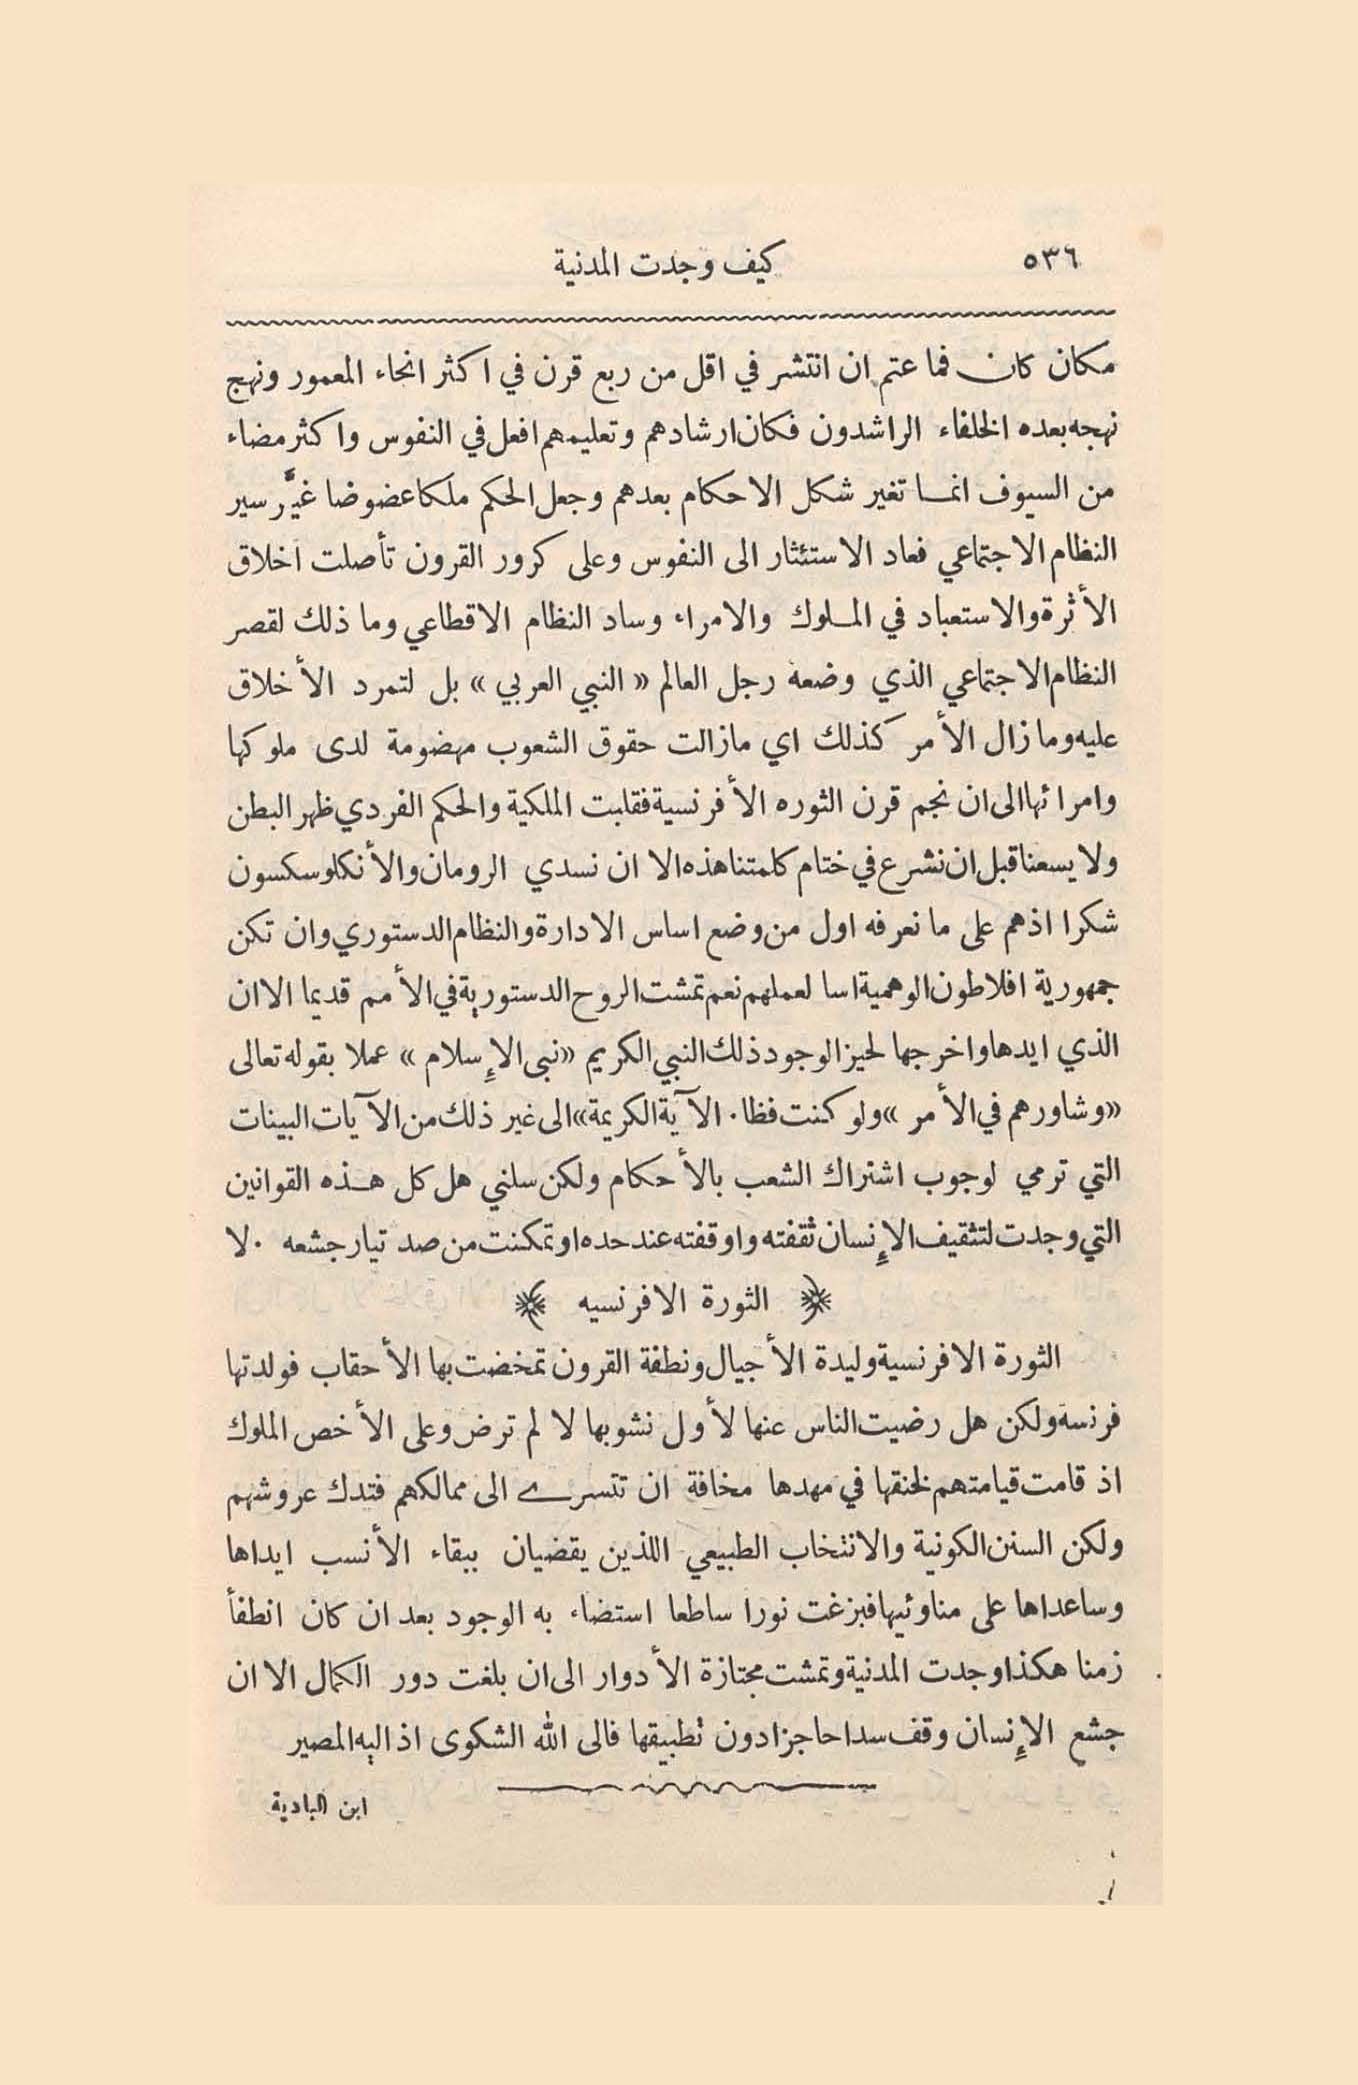 ٥٣٦
كيف وجدت المدنية
مكان كان فما عتم ان انتشر في اقل من ربع قرن في اكثر انحاء المعمور ونهج
نهجه بعده الخلفاء الراشدون فكان ارشادهم وتعليمهم افعل في النفوس واكثر مضاء
من السيوف انما تغير شكل الاحكام بعدهم وجعل الحكم ملكا عضوضا غيَّر سير
النظام الاجتماعي فعاد الاستئثار الى النفوس وعلى كرور القرون تأصلت اخلاق
الأثرة والاستعباد في الملوك والامراء وساد النظام الاقطاعي وما ذلك لقصر
النظام الاجتماعي الذي وضعه رجل العالم « النبي العربي » بل لتمرد الأخلاق
عليه وما زال الأمر كذلك اي مازالت حقوق الشعوب مهضومة لدى ملوكها
وامرائها الى ان نجم قرن الثوره الأفرنسية فقلبت الملكية والحكم الفردي ظهر البطن
ولا يسعنا قبل ان نشرع في ختام كلمتنا هذه الا ان نسدي الرومان والأنكلوسكسون
شكرا اذهم على ما نعرفه اول من وضع اساس الادارة والنظام الدستوري وان تكن
جمهورية افلاطون الوهمية اسا لعملهم نعم تمشت الروح الدستورية في الأمم قديما الا ان
الذي ايدها واخرجها لحيز الوجود ذلك النبي الكريم « نبى الإسلام » عملا بقوله تعالى
« وشاورهم في الأمر » ولو كنت فظا ٠ الآية الكريمة » الى غير ذلك من الآيات البينات
التي ترمي لوجوب اشتراك الشعب بالأحكام ولكن سلني هل كل هذه القوانين
التي وجدت لتثقيف الإنسان ثقفته واوقفته عند حده او تمكنت من صد تيار جشعه ٠ لا
﴿ الثورة الافرنسيه ﴾
الثورة الافرنسية وليدة الأجيال ونطفة القرون تمخضت بها الأحقاب فولدتها
فرنسه ولكن هل رضيت الناس عنها لأول نشوبها لا لم ترض وعلى الأخص الملوك
اذ قامت قيامتهم لخنقها في مهدها مخافة ان تتسرے الى ممالكهم فتدك عروشهم
ولكن السنن الكونية والانتخاب الطبيعي اللذين يقضيان ببقاء الأنسب ايداها
وساعداها على مناوئيها فبزغت نورا ساطعا استضاء به الوجود بعد ان كان انطفأ
زمنا هكذا وجدت المدنية وتمشت مجتازة الأدوار الى ان بلغت دور الكمال الا ان
جشع الإنسان وقف سدا حاجزا دون تطبيقها فالى الله الشكوى اذ اليه المصير
ابن البادية